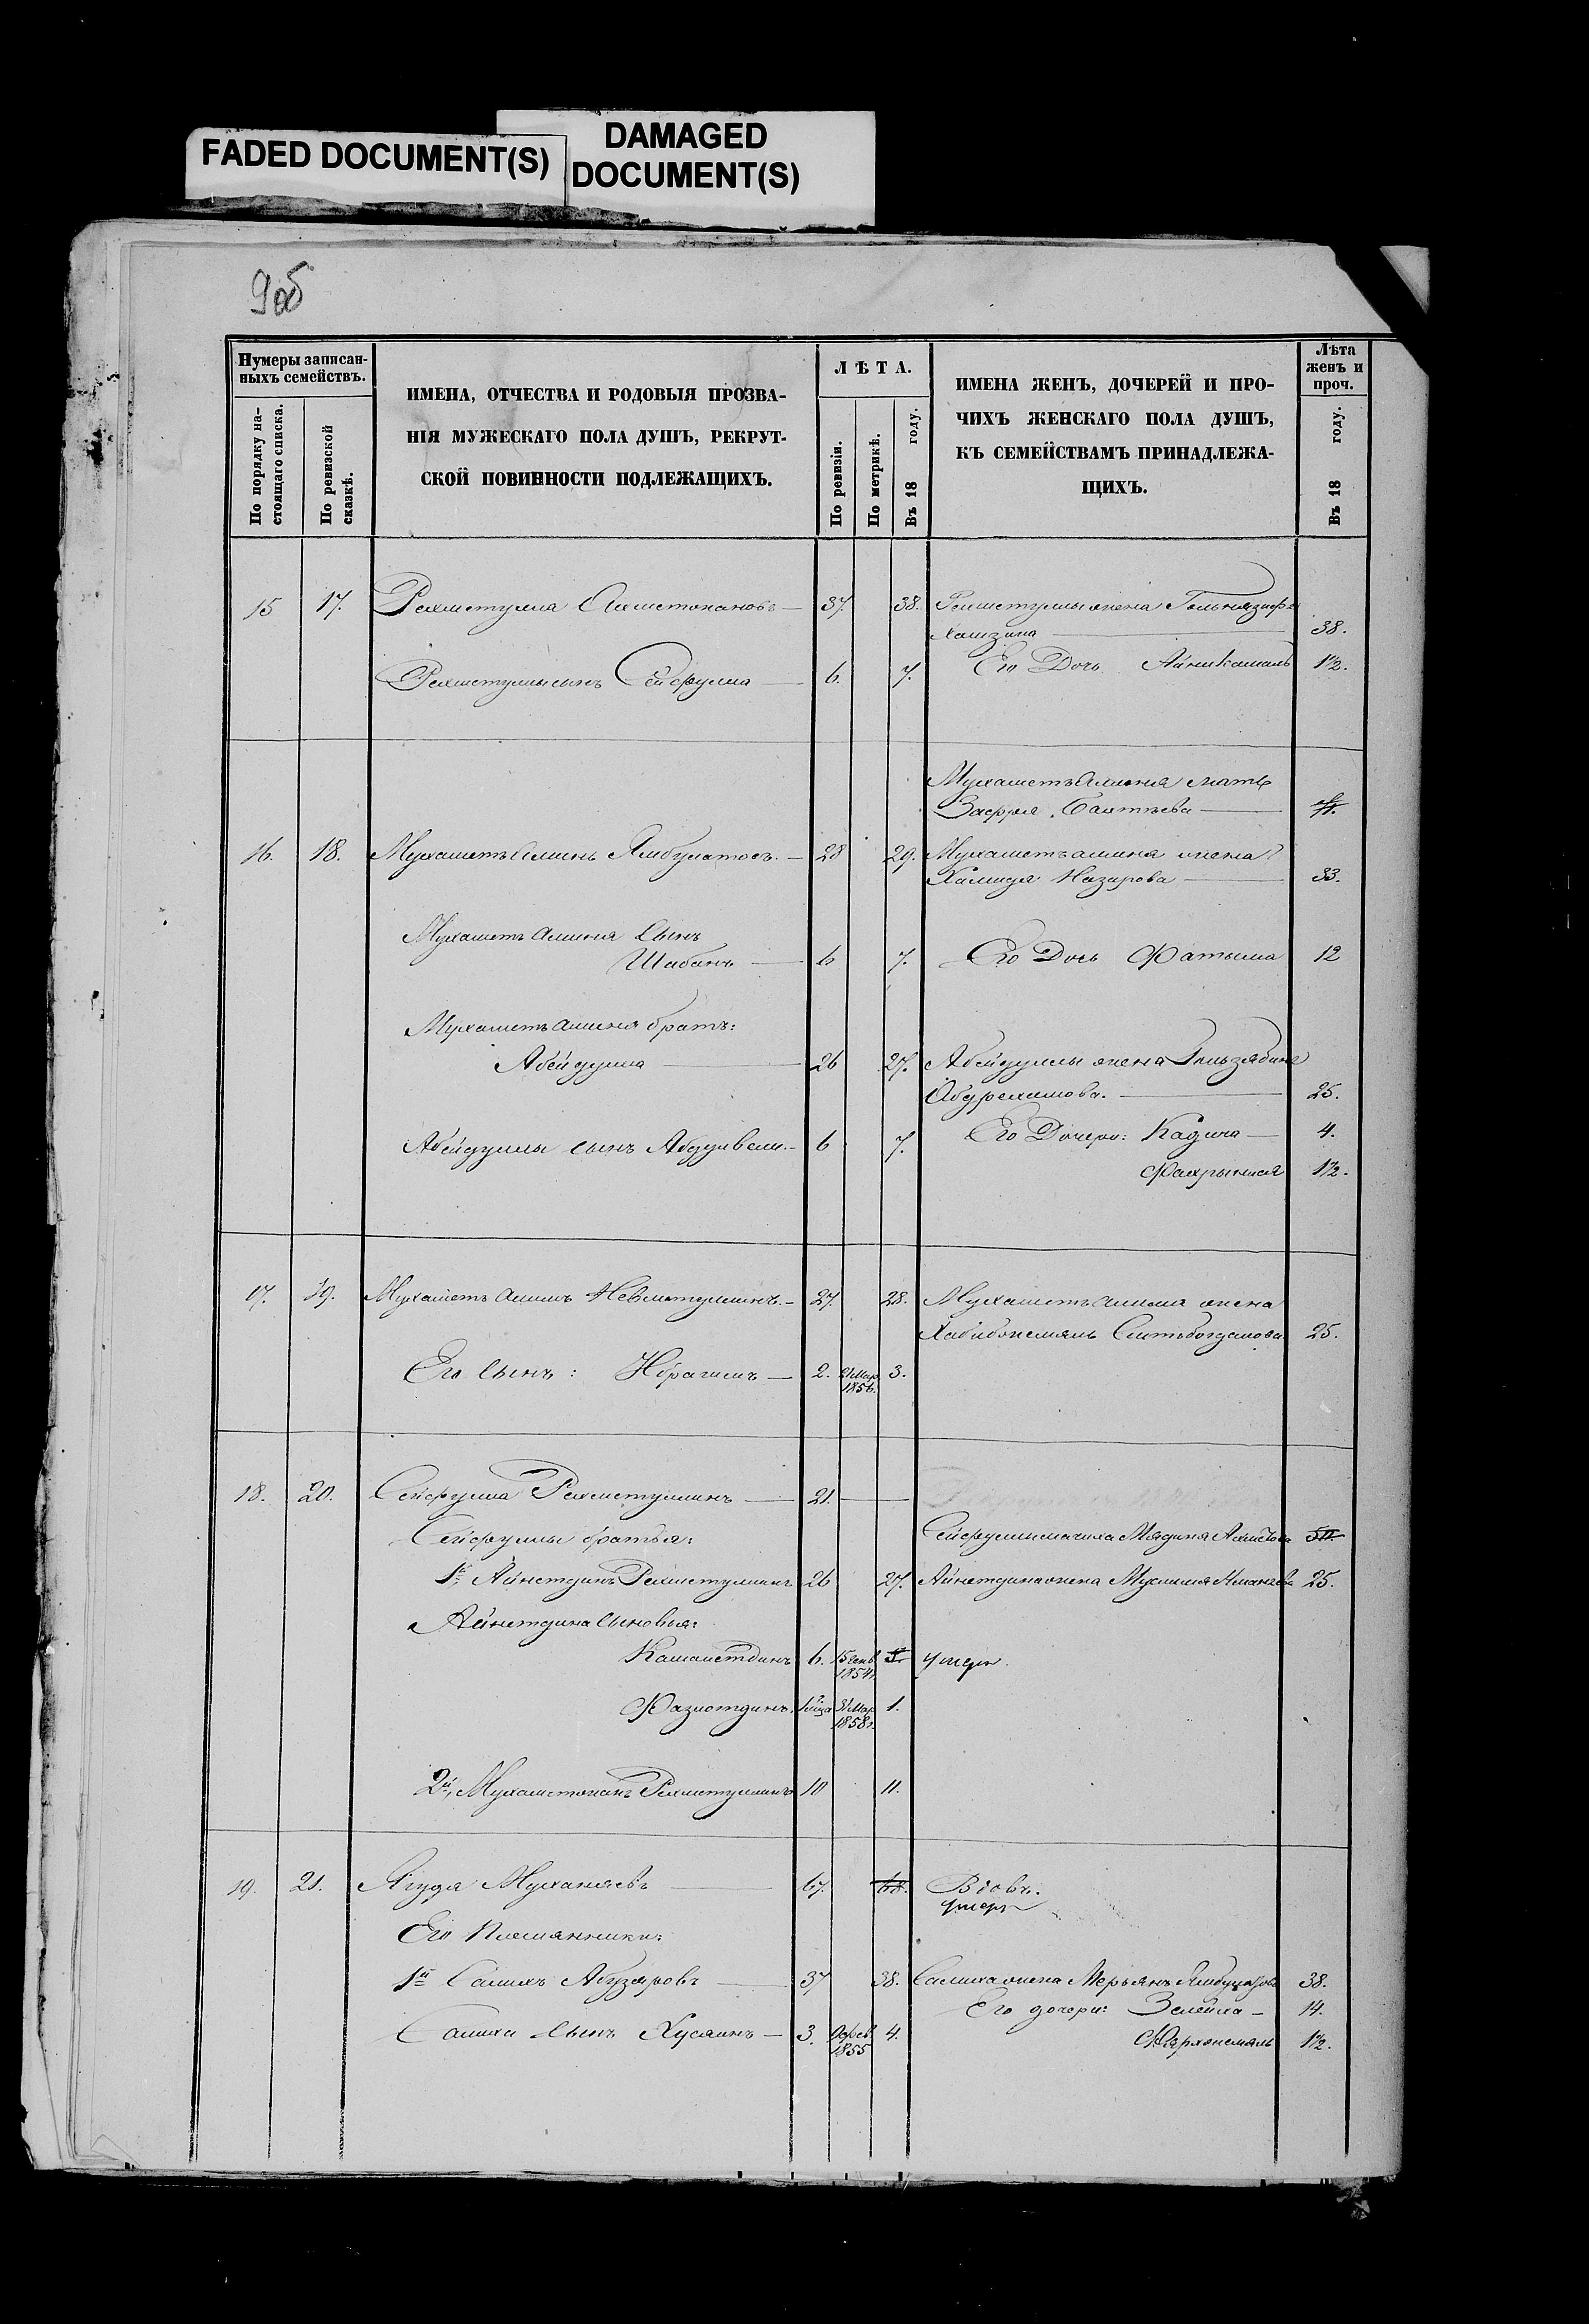 FADED DOCUMENT(S)
DAMAGED
DOCUMENT(S)
9об
Нумеры записан-
ныхъ семействъ.
По порядку на-
стоящаго списка.
По ревизской
сказкѣ.
ИМЕНА, ОТЧЕСТВА И РОДОВЫЯ ПРОЗВА-
НІЯ МУЖЕСКАГО ПОЛА ДУШЪ, РЕКРУТ-
СКОЙ ПОВИННОСТИ ПОДЛЕЖАЩИХЪ.
ЛѢТА.
По ревизіи.
По метрикѣ.
Въ 18 году.
ИМЕНА ЖЕНЪ, ДОЧЕРЕЙ И ПРО-
ЧИХЪ ЖЕНСКАГО ПОЛА ДУШЪ,
КЪ СЕМЕЙСТВАМЪ ПРИНАДЛЕЖА-
ЩИХЪ.
Лѣта
женъ и
проч.
Въ 18 году.
15 17. Рахметулла Ахметжановъ — 37. 38. Рахметуллы жена
Хамзина — 38.
Рахметуллы сынъ Сейфулла — 6. 7. Его Дочь Айникамалъ 1/2.
Мухаметъ Аминя мать
Баитѣева —
16. 18. Мухаметъ Аминь Ямбулатовъ. — 28 29. Мухаметъ амина жена
Халида Назарова — 33.
Мухаметъ Аминя Сынъ
Шабанъ — 6 7. Его Дочь Фатыма 12
Мухаметъ Аминя братъ:
Абейдулла — 26 27. Абейдуллы жена
Абдрахимова. — 25.
Абейдуллы сынъ Абдулвели. — 6 7. Его Дочери: Кадига — 4.
1/2.
17. 19. Мухаметъ Аминъ Невметуллинъ. — 27. 28. Мухаметъ амина жена
Хабибжемялъ 25.
Его Сынъ: Ибрагимъ — 2. Мар 1856. 3.
18. 20. Сейфулла Рахметуллинъ — 21. —
Сейфуллы братья: Сейфуллы мачиха Мядиня 50.
1й Айнетдинъ Рахметуллинъ 26 27. Айнетдина жена 25.
Айнетдина Сыновья:
Камалетдинъ 6. 15 янв 1854. умеръ.
Фазлотдинъ. Мар 1858г. 1.
2й, Мухаметжанъ Рахметуллинъ 10 11.
19. 21. Ягуда Мухамяевъ — 67. 68. Вдовъ.
умеръ
Его Племянники:
1й Салихъ Абузяровъ — 37 38. Салиха жена Мерьямъ 38.
Его дочери: Зелейха — 14.
Салиха Сынъ Хусаинъ — 3. фев 1855 4. 1/2.